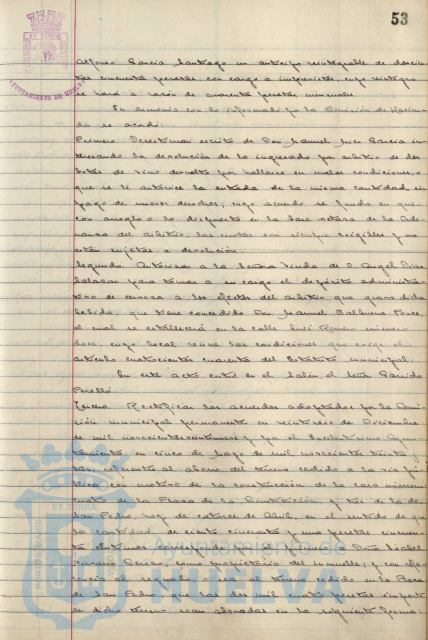 53
AYUNTAMIENTO DE HUELVA
Alfonso García Santiago un anticipo reintegrable de doscien-
tas cincuenta pesetas, con cargo a imprevistos, cuyo reintegro
se hará a razón de cuarenta pesetas mensuales.
En armonía con lo informado por la Comisión de Hacien-
da se acordó:
Primero. Desestimar escrito de Don Manuel García in-
teresando la devolución de lo ingresado por arbitrio de dos
botas de vino devuelto por hallarse en malas condiciones, o
que se le autorice la entrada de la misma cantidad sin
pago de nuevos derechos, cuyo acuerdo se funda en que
con arreglo a lo dispuesto en la base octava de la Orde-
nanza del arbitrio, las cuotas son siempre exigibles y no
están sujetas a devolución.
Segundo. Autorizar a la Señora Viuda de D. Angel Díaz
para tomar a su cargo el depósito administra-
tivo de cerveza a los efectos del arbitrio que grava dicha
bebida, que tiene concedido Don Manuel Ponce,
el cual se establecerá en la calle Romero número
doce, cuyo local reune las condiciones que exige el
artículo cuatrocientos cuarenta del Estatuto municipal.
En este acto entró en el Salón el Señor Garrido
Perelló.
Tercero. Rectificar los acuerdos adoptados por la Comi-
sión municipal permanente en veintiseis de Diciembre
de mil novecientos veintinueve y por el Excelentísimo Ayun-
tamiento en cinco de de mil novecientos treinta y
tres, referentes al abono del terreno cedido a la vía pú-
blica con motivo de la construcción de la casa número
cuatro de la Plaza de la Constitución y tres de la de
San Pedro, hoy de catorce de Abril, en el sentido de que
la cantidad de ciento cincuenta y una pesetas cincuenta
céntimos Doña Isabel
como propietaria del inmueble; y con refe-
rencia al segundo, o sea, al terreno cedido en la Plaza
de San Pedro, que las dos mil cuatro pesetas importe
de dicho terreno sean abonadas en la siguiente forma:
Ayuntamiento de
HUELVA